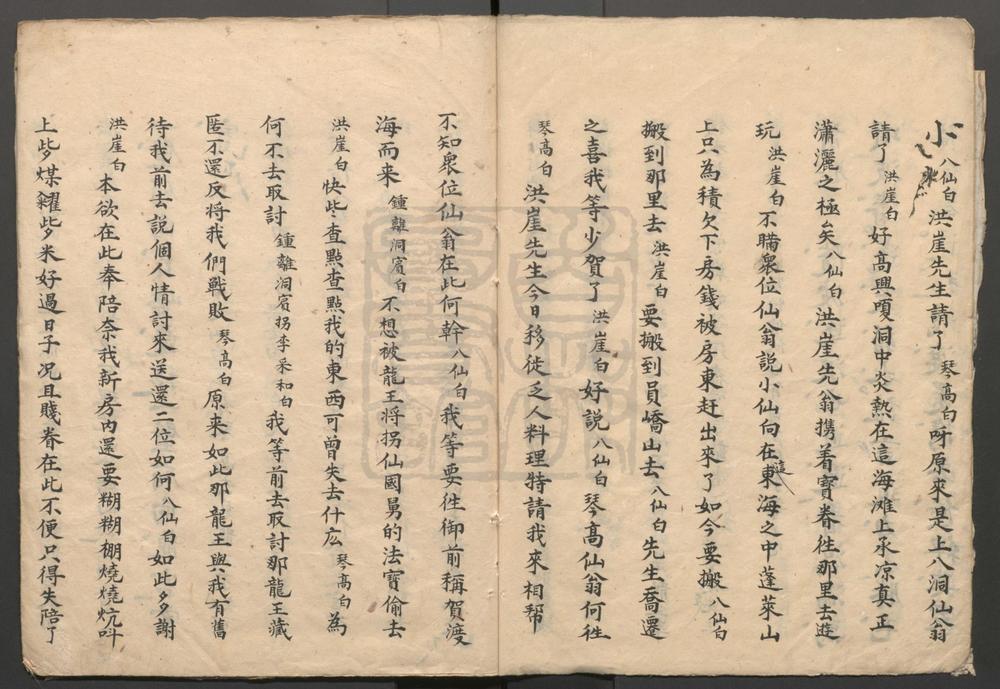 八仙白洪崖先生請了琴高白呀原來是上八洞仙翁
請了洪崖白好高興嗄洞中炎熱在這海滩上承凉真正
瀟灑之極矣八仙白洪崖先翁携着寶眷徃那里去遊
玩洪崖白不瞞衆位仙翁説小仙向在這東海之中蓬萊山
上只為積欠下房錢被房東赶出來了如今要搬八仙白
搬到那里去洪崖白要搬到員嶠山去八仙白先生喬遷
之喜我等少賀了洪崖白好説八仙白琴高仙翁何徃
琴高白洪崖先生今日移徙乏人料理特請我來相帮
不知衆位仙翁在此何幹八仙白我等要徃御前稱賀渡
海而来鍾離洞賓白不想被龍王将拐仙國舅的法寳偷去
洪崖白快些查點查點我的東西可曾失去什庅琴高白為
何不去取討鍾離洞賓拐李采和白我等前去取討那龍王藏
匿不還反将我們戰敗琴高白原来如此那龍王與我有舊
待我前去説個人情討來送還二位如何八仙白如此多謝
洪崖白本欲在此奉陪奈我新房内還要糊糊棚燒燒炕呌
上些煤糴些米好過日子况且賤眷在此不便只得失陪了